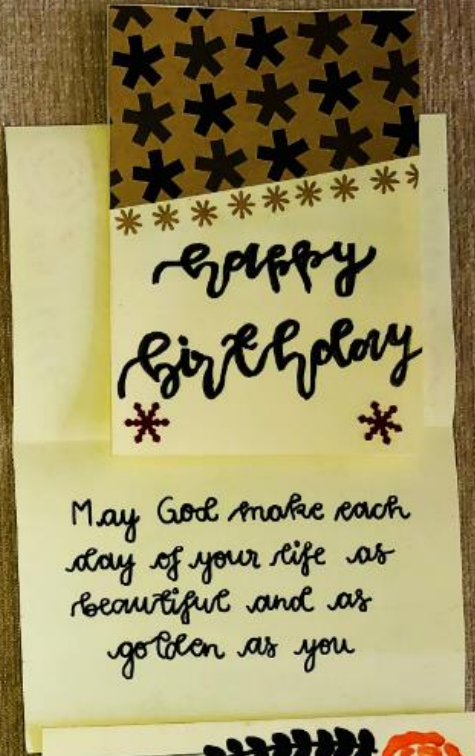 happy
birthday
May God make each
day of your life as
beautiful and as
golden as you